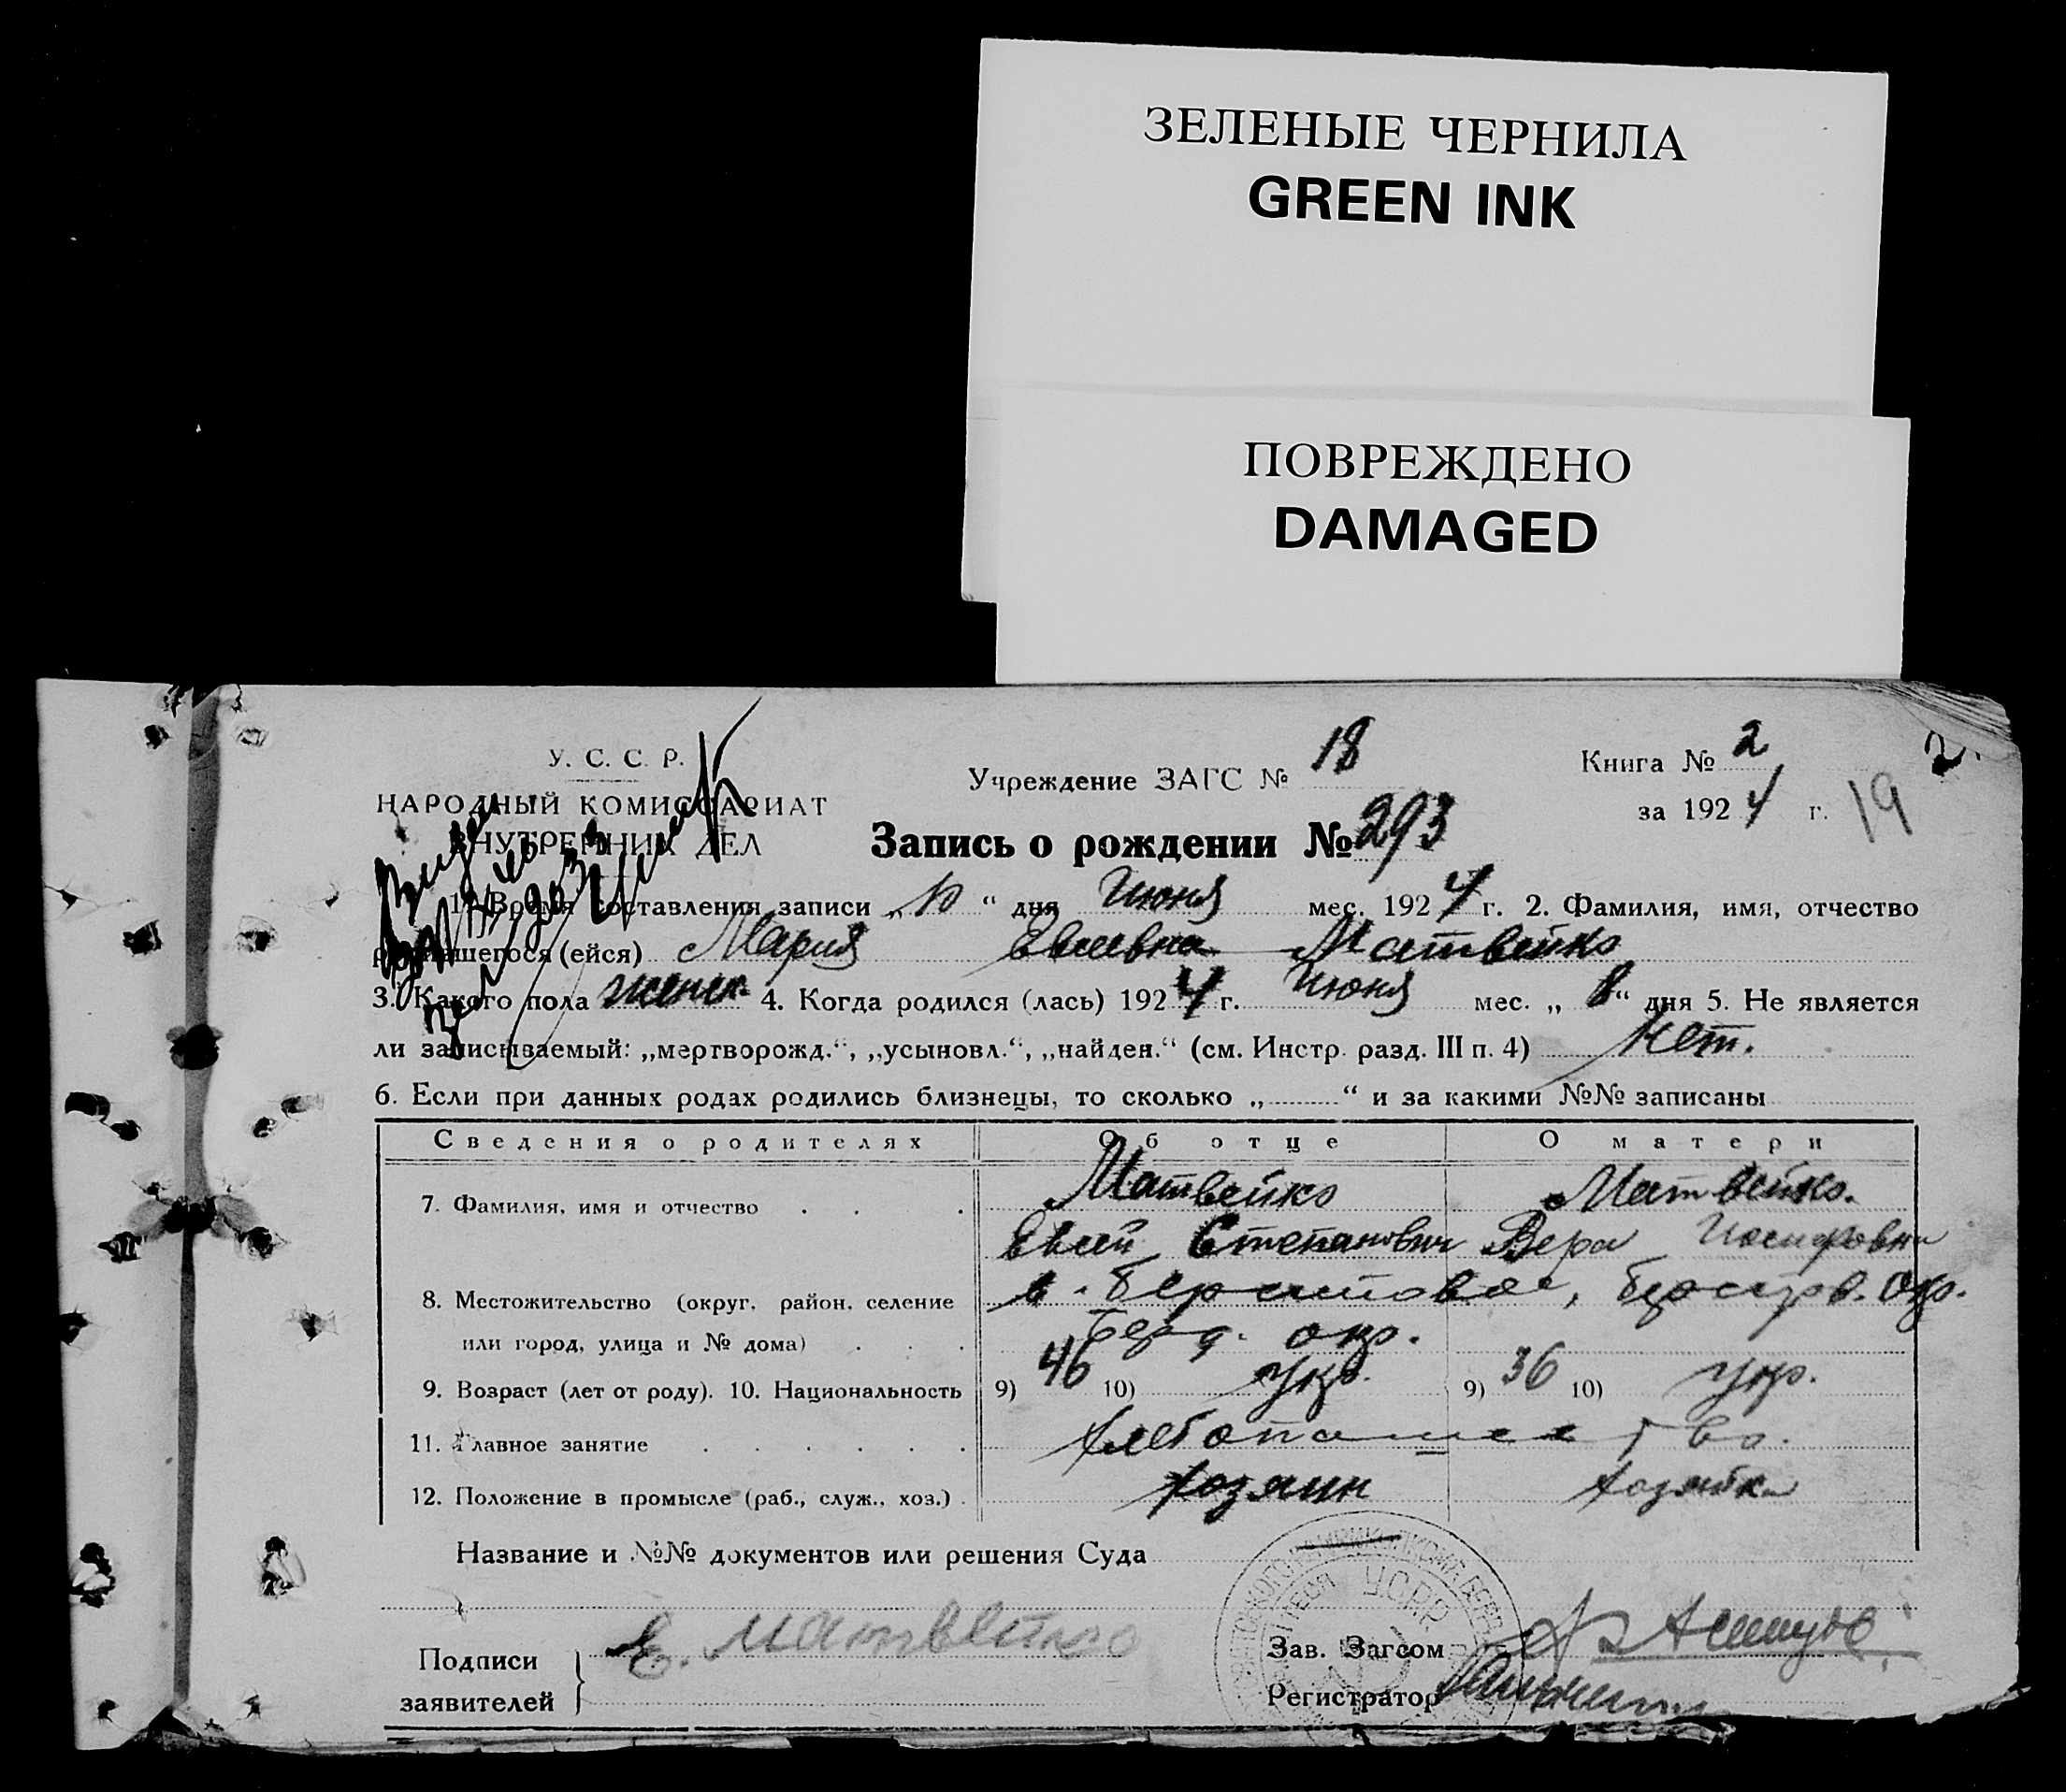 ЗЕЛЕНЫЕ ЧЕРНИЛА
GREEN INK
ПОВРЕЖДЕНО
DAMAGED
У. С. С. Р.
НАРОДНЫЙ КОМИССАРИАТ
ВНУТРЕННИХ ДЕЛ
Учреждение ЗАГС № 18
Книга № 2
2.
за 1924 г. 19
Запись о рождении № 293
1. Время составления записи „10“ дня Июня мес. 1924 г. 2. Фамилия, имя, отчество
родившегося (ейся) Мария Матвейко
3. Какого пола женск. 4. Когда родился (лась) 1924 г. Июня мес. „8“ дня 5. Не является
ли записываемый: „мертворожд.“, „усыновл.“, „найден.“ (см. Инстр. разд. III п. 4) Нет.
6. Если при данных родах родились близнецы, то сколько „ “ и за какими №№ записаны
Сведения о родителях Об отце О матери
7. Фамилия, имя и отчество Матвейко Матвейко.
Евсей Степанович Вера Иосифовна
8. Местожительство (округ, район, селение
или город, улица и № дома) Берд. окр.
9. Возраст (лет от роду). 10. Национальность 9) 46 10) Укр. 9) 36 10) Укр.
11. Главное занятие Хлебопашество.
12. Положение в промысле (раб., служ., хоз.) хозяин хозяйка
Название и №№ документов или решения Суда
У.С.Р.Р.
Подписи
заявителей
Е. Матвейко
Зав. Загсом
Регистратор